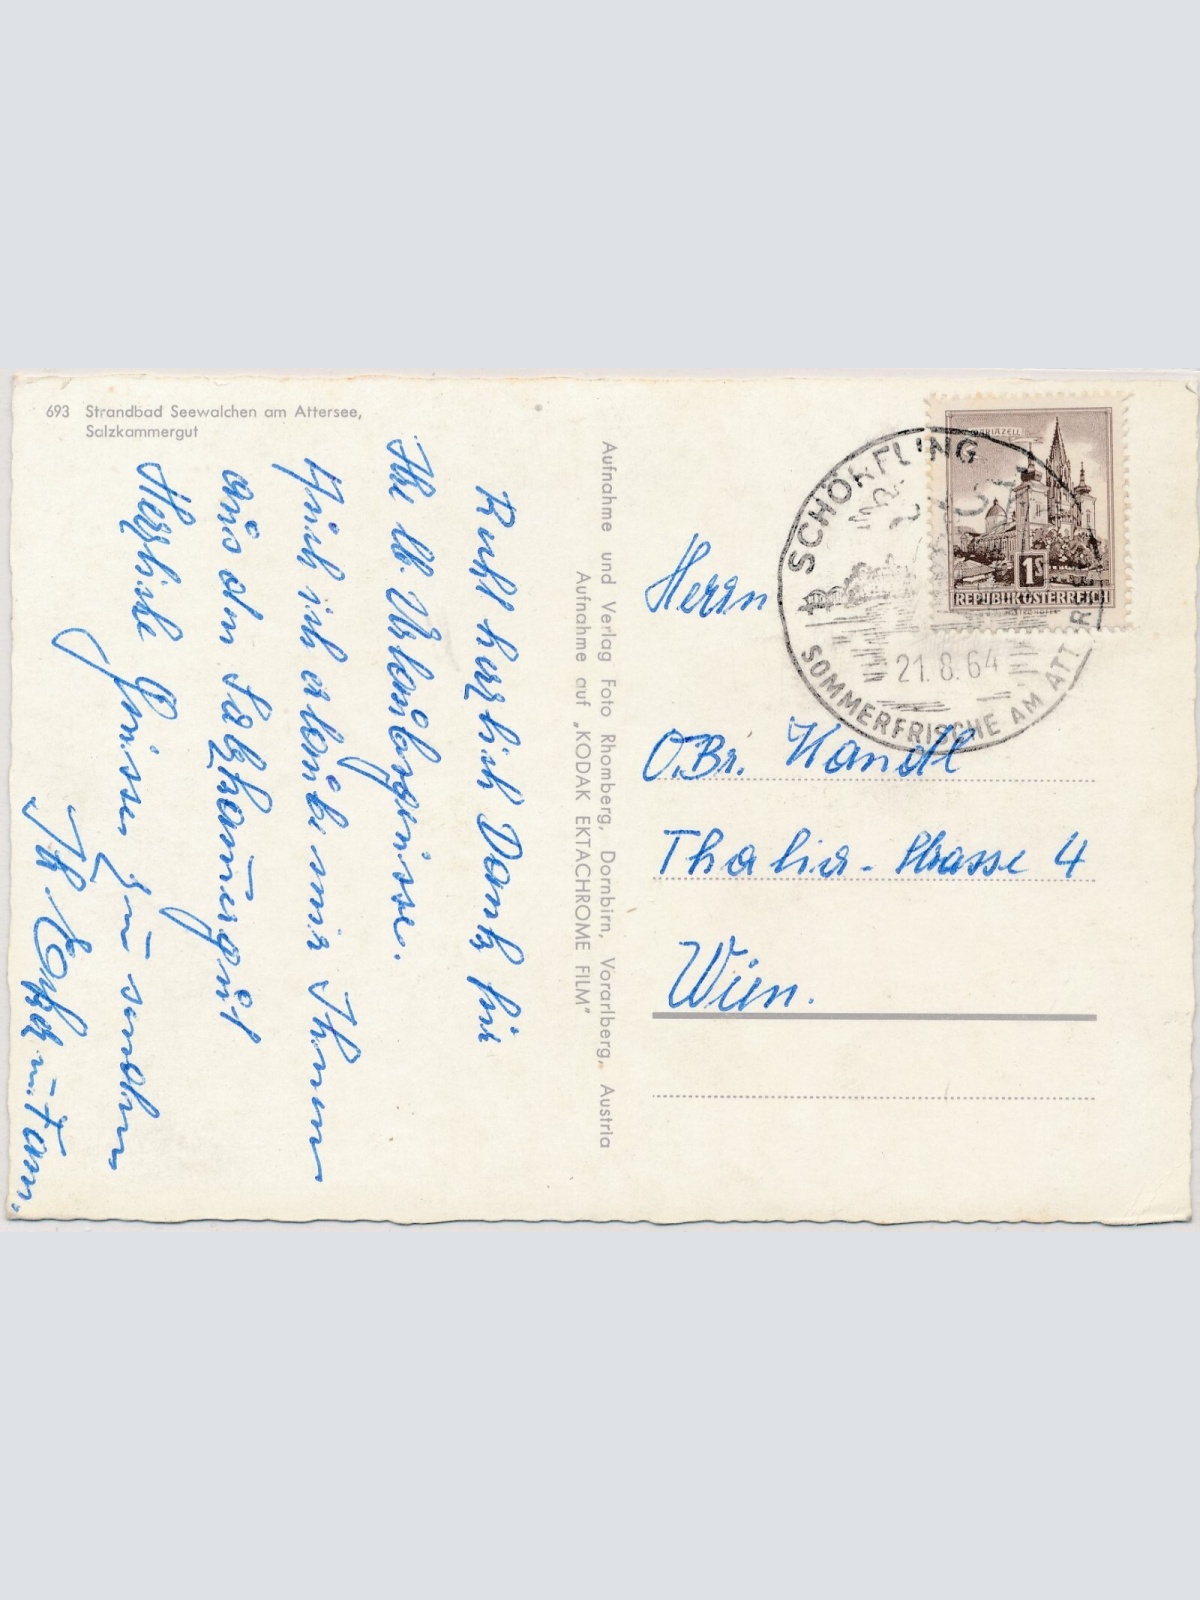 693 Strandbad Seewalchen am Attersee,
Salzkammergut
Recht herzlich Dank für
Ihre lb. Urlaubsgrüsse.
Auch ich erlaube mir Ihnen
aus dem Salzkammergut
Herzliche Grüsse zu senden
Ihr u. Fam.
Aufnahme und Verlag Foto Rhomberg, Dornbirn, Vorarlberg, Austria
Aufnahme auf „KODAK EKTACHROME FILM"
MARIAZELL
1S
REPUBLIK ÖSTERREICH
SCHÖRFLING
21.8.64
SOMMERFRISCHE AM ATT R
Herrn
O.Br. Handl
Thalia-Strasse 4
Wien.